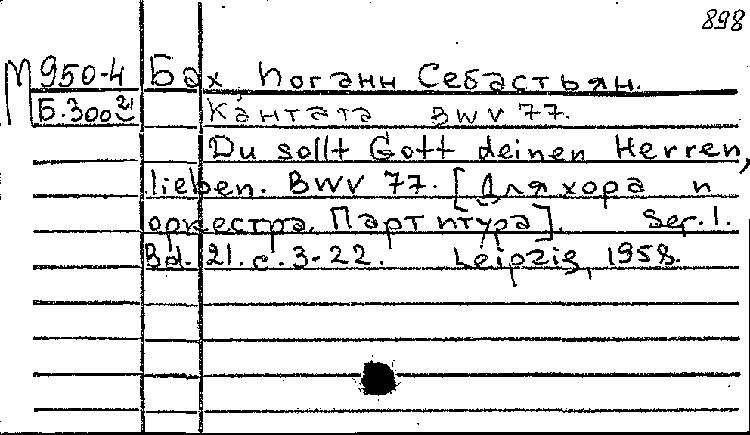 898
М 950-4 Бах, Иоганн Себастьян.
Б.300 21 Кантата BWV 77.
Du sollt Gott deinen Herren,
lieben. BWV 77. [Для хора и
оркестра. Партитура]. Ser. 1.
Bd. 21. с. 3-22. Leipzig, 1958.